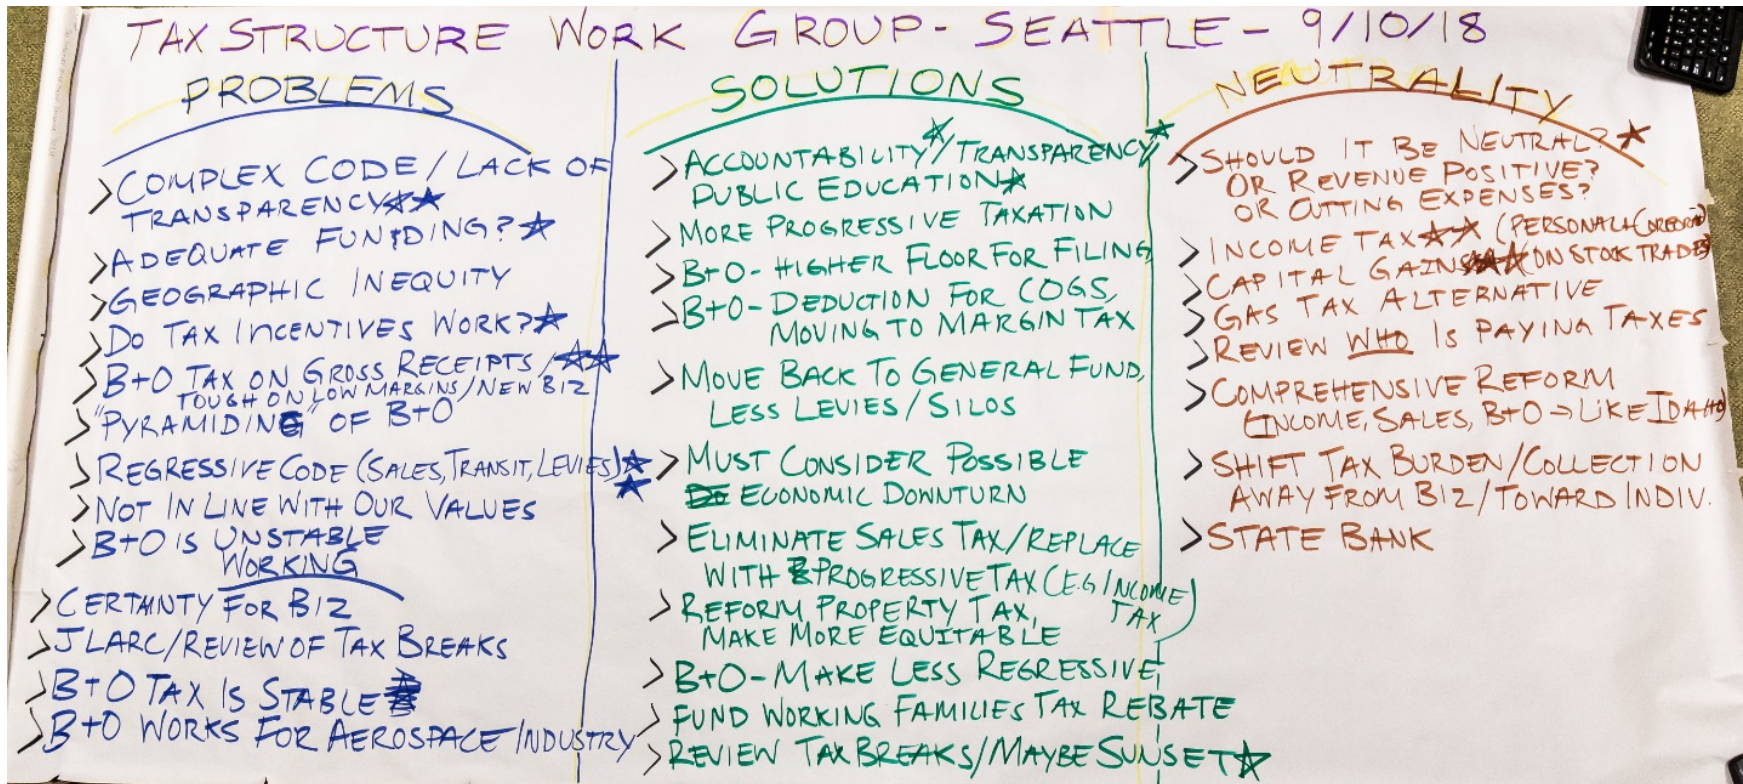 TAX STRUCTURE WORK GROUP - SEATTLE - 9/10/18
PROBLEMS
> COMPLEX CODE / LACK OF
TRANSPARENCY ★★
> ADEQUATE FUNDING? ★
> GEOGRAPHIC INEQUITY
> DO TAX INCENTIVES WORK? ★
> B+O TAX ON GROSS RECEIPTS / ★★
TOUGH ON LOW MARGINS / NEW BIZ
> "PYRAMIDING" OF B+O
> REGRESSIVE CODE (SALES, TRANSIT, LEVIES) ★★
> NOT IN LINE WITH OUR VALUES
> B+O IS UNSTABLE
WORKING
> CERTAINTY FOR BIZ
> JLARC/REVIEW OF TAX BREAKS
> B+O TAX IS STABLE ★
> B+O WORKS FOR AEROSPACE INDUSTRY
SOLUTIONS
> ACCOUNTABILITY ★/TRANSPARENCY ★
PUBLIC EDUCATION ★
> MORE PROGRESSIVE TAXATION
> B+O - HIGHER FLOOR FOR FILING
> B+O - DEDUCTION FOR COGS,
MOVING TO MARGIN TAX
> MOVE BACK TO GENERAL FUND,
LESS LEVIES / SILOS
> MUST CONSIDER POSSIBLE
ECONOMIC DOWNTURN
> ELIMINATE SALES TAX/REPLACE
WITH PROGRESSIVE TAX (E.G INCOME
TAX)
> REFORM PROPERTY TAX,
MAKE MORE EQUITABLE
> B+O - MAKE LESS REGRESSIVE
> FUND WORKING FAMILIES TAX REBATE
> REVIEW TAX BREAKS/MAYBE SUNSET ★
NEUTRALITY
> SHOULD IT BE NEUTRAL? ★
OR REVENUE POSITIVE?
OR CUTTING EXPENSES?
> INCOME TAX ★★ (PERSONAL + CORPORATE)
> CAPITAL GAINS ★★ (ON STOCK TRADES)
> GAS TAX ALTERNATIVE
> REVIEW WHO IS PAYING TAXES
> COMPREHENSIVE REFORM
(INCOME, SALES, B+O → LIKE IDAHO)
> SHIFT TAX BURDEN/COLLECTION
AWAY FROM BIZ/TOWARD INDIV.
> STATE BANK